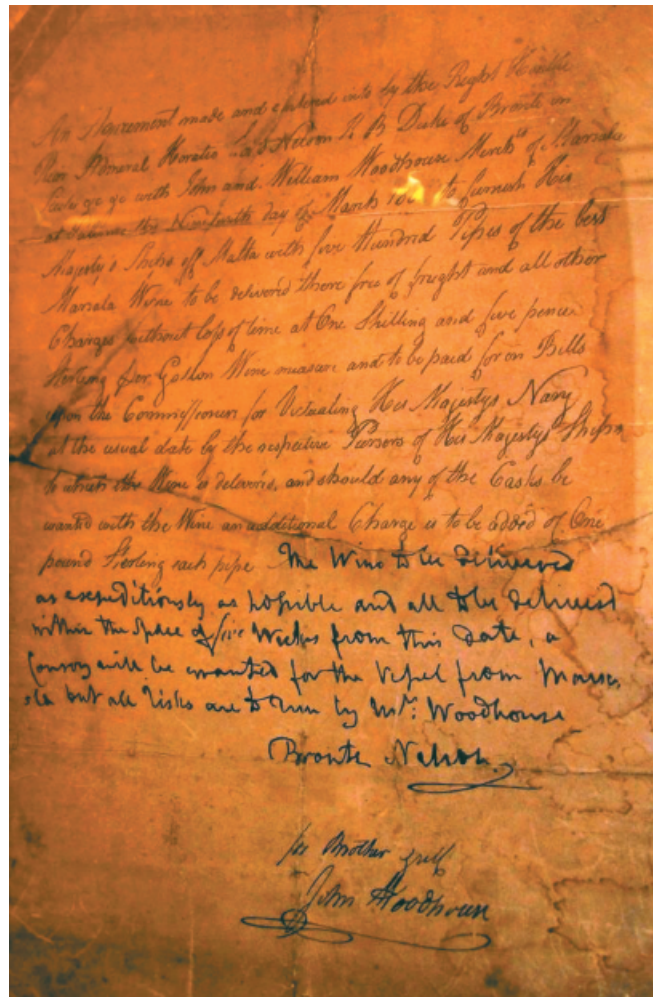 An Agreement made and entered into by the Right Honble
Rear Admiral Horatio Lord Nelson K B Duke of Bronte in
with John and William Woodhouse Merchts of Marsala
at Palermo the Nineteenth day of March to furnish His
Majesty's Ships off Malta with five Hundred Pipes of the best
Marsala Wine to be delivered there free of freight and all other
Charges without loss of time at One Shilling and five pence
Sterling per Gallon Wine measure and to be paid for on Bills
upon the Commissioners for Victualing His Majestys Navy
at the usual date by the respective Pursers of His Majestys Ships
to which the Wine is delivered, and should any of the Casks be
wanted with the Wine an additional Charge is to be added of One
pound Sterling each pipe The Wine to be delivered
as expeditiously as possible and all to be delivered
within the space of five Weeks from this date, a
Convoy will be wanted for the Vessel from Marsa-
-la but all risks are to run by Mr. Woodhouse
Bronte Nelson
for Brother & self
John Woodhouse